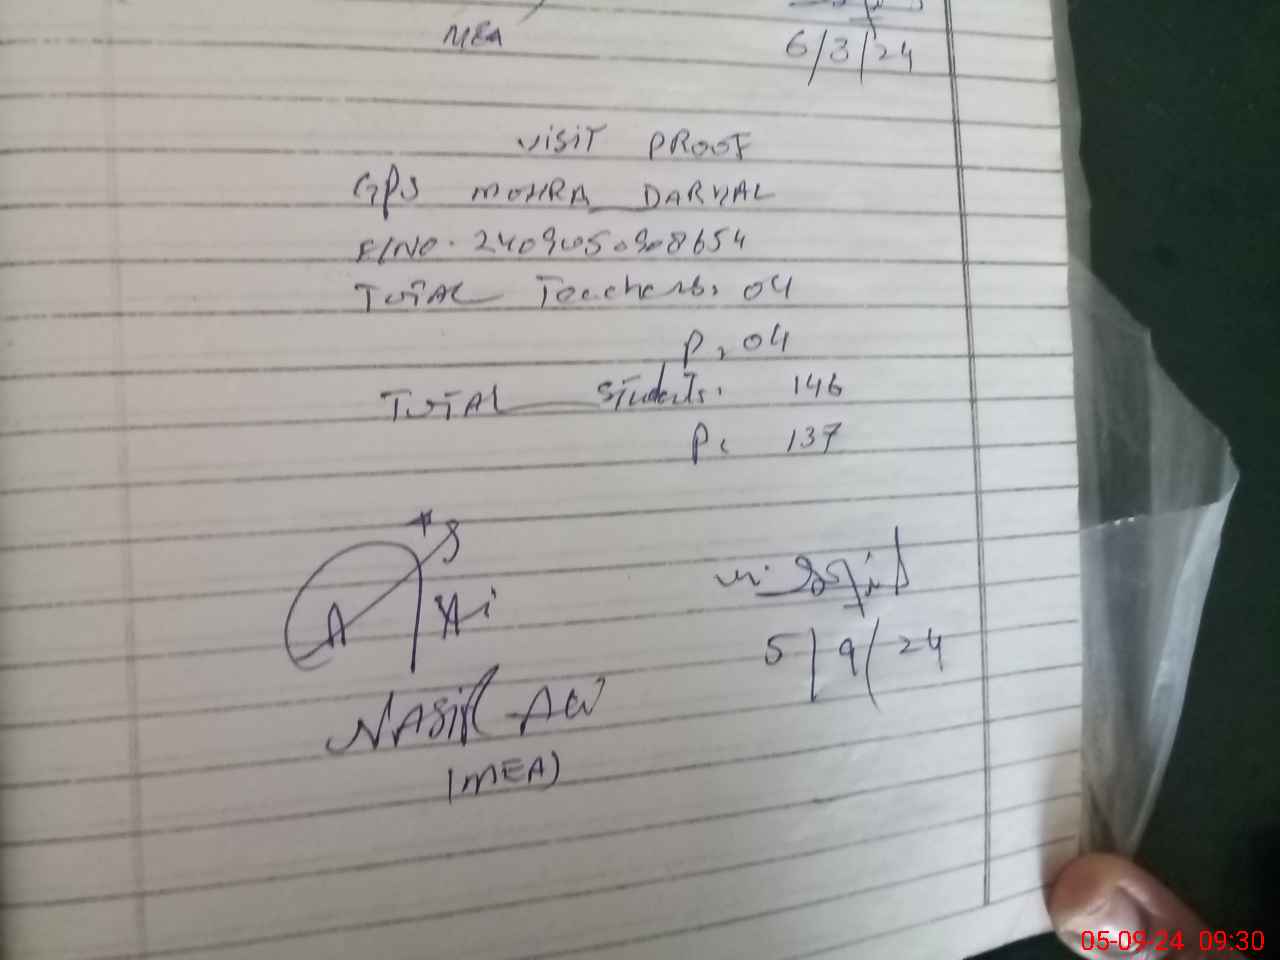 MEA
6/3/24
VISIT PROOF
GPS MOHRA DARYAL
TOTAL Teachers: 04
P: 04
TOTAL Students: 146
P: 137
5/9/24
NASIR
(MEA)
05-09-24 09:30